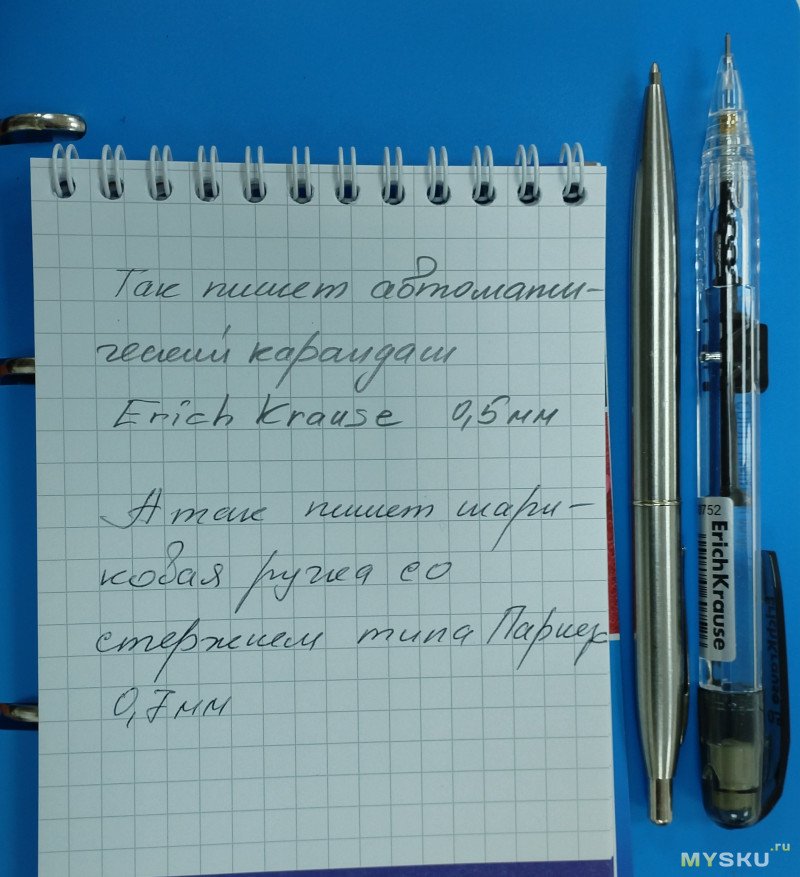 Так пишет автомати-
ческий карандаш
Erich Krause 0,5 мм
А так пишет шари-
ковая ручка со
стержнем типа Паркер
0,7 мм
0752
ErichKrause
MYSKU.ru